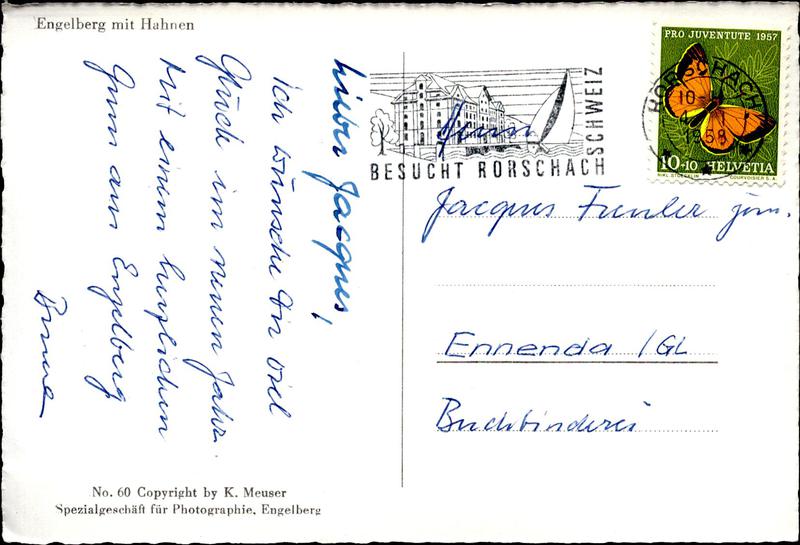 Engelberg mit Hahnen
lieber Jacques,
ich wünsche Dir viel
Glück im neuen Jahr.
Mit einem herzlichen
Gruss aus Engelberg
No. 60 Copyright by K. Meuser
Spezialgeschäft für Photographie, Engelberg
BESUCHT RORSCHACH
SCHWEIZ
PRO JUVENTUTE 1957
RORSCHACH
1958
10+10 HELVETIA
COURVOISIER S.A.
Herrn
Jacques jun.
Ennenda /GL
Buchbinderei